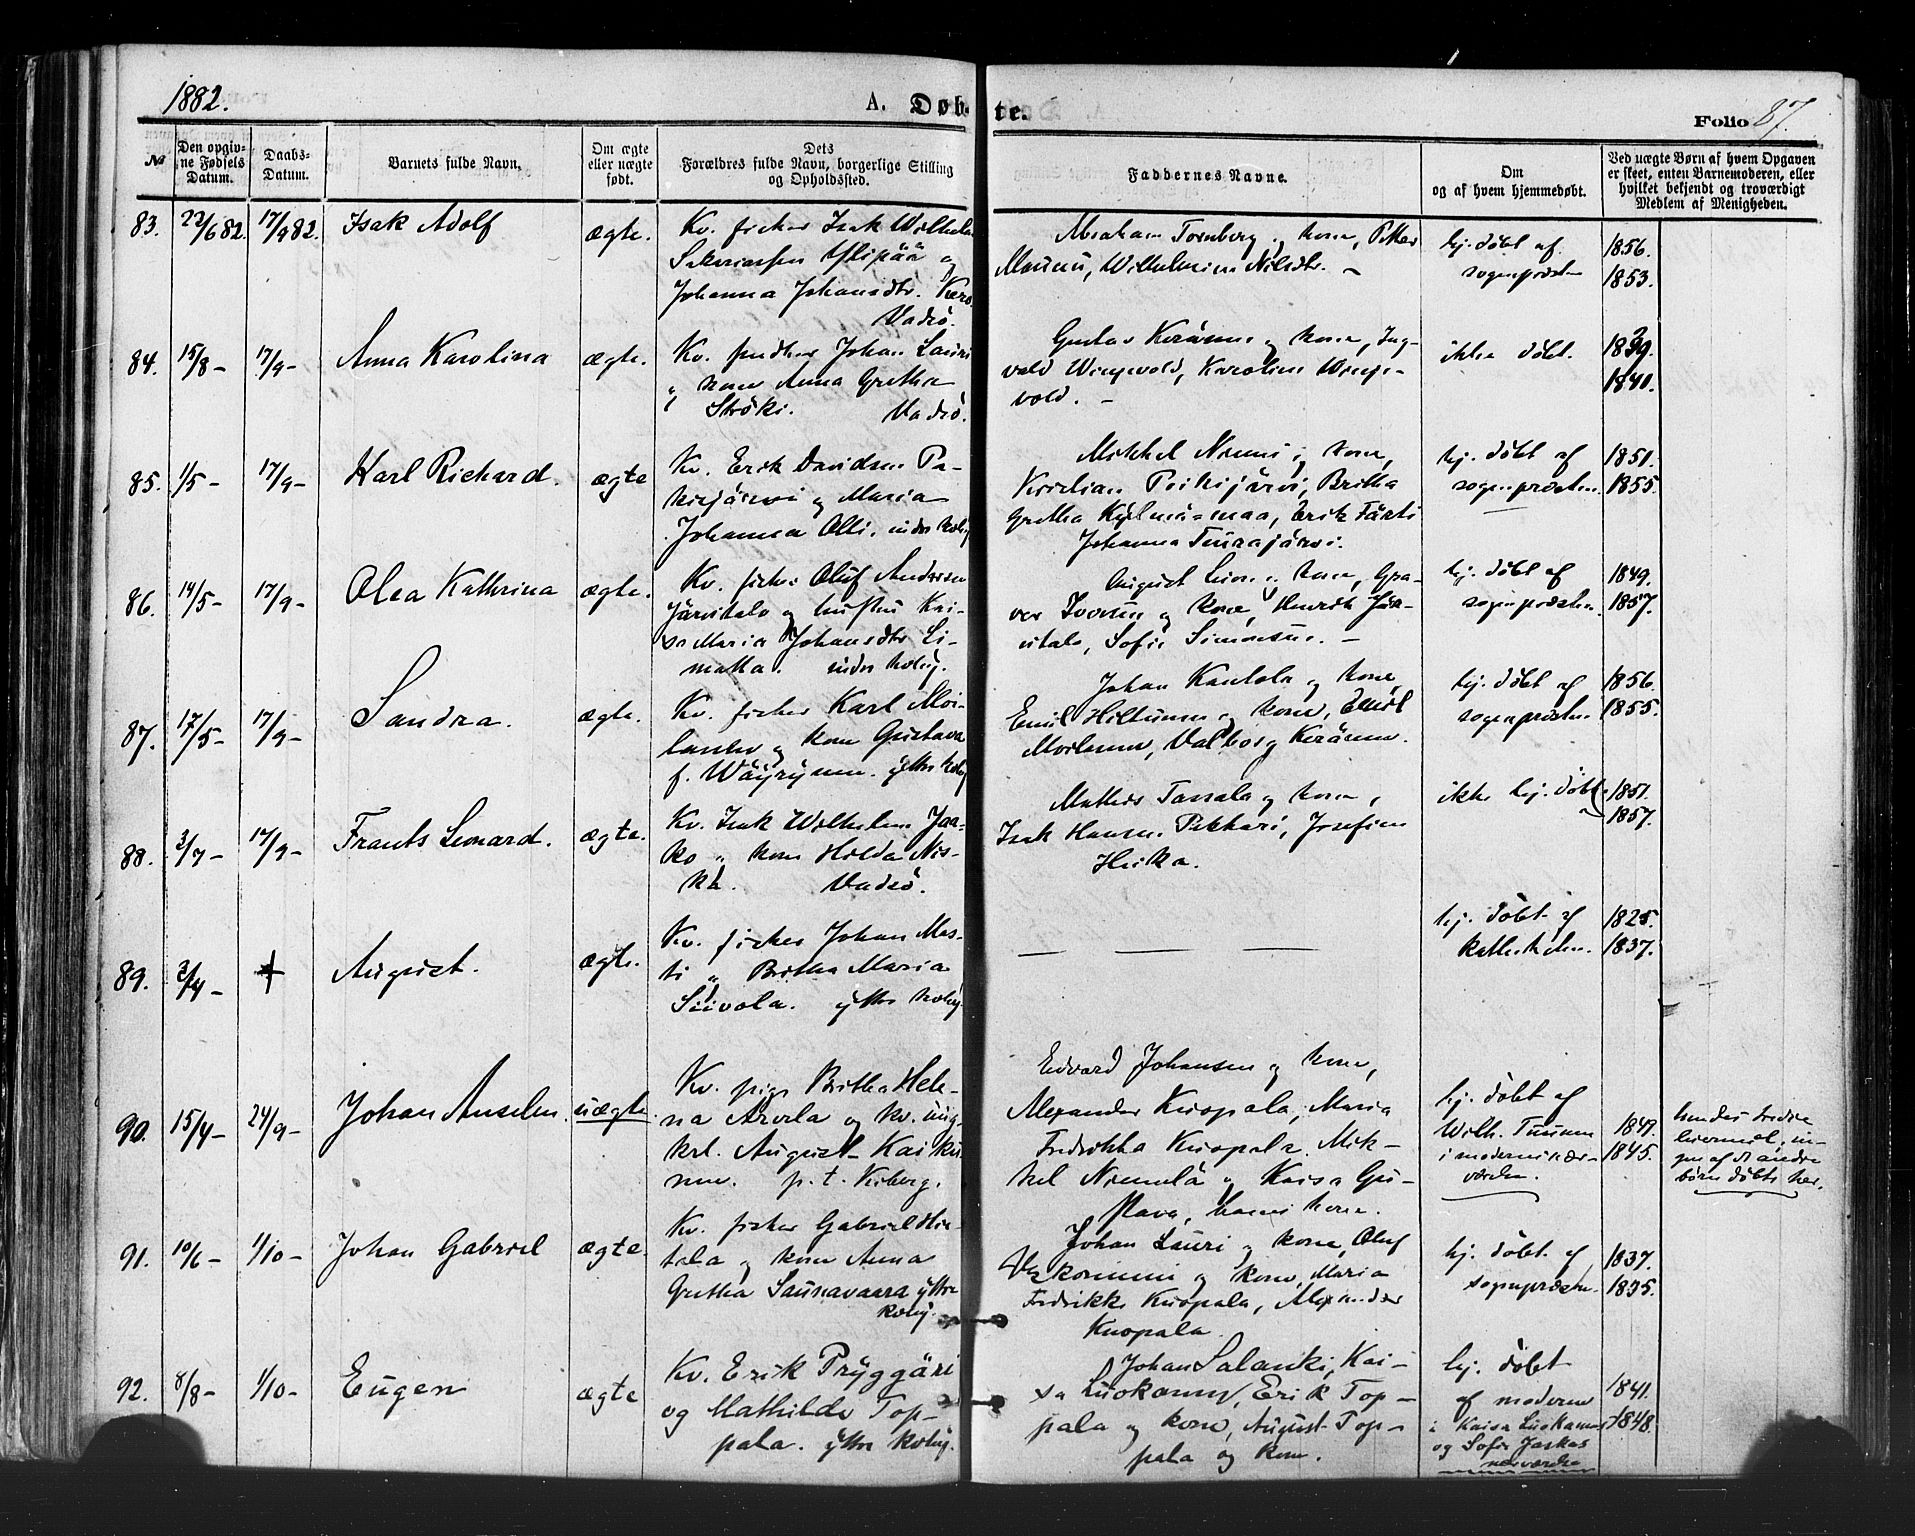 1882.
A. Døb-
te.
Folio 87.
№
Den opgiv-
ne Fødsels
Datum.
Daabs-
Datum.
Barnets fulde Navn.
Om ægte
eller uægte
født.
Dets
Forældres fulde Navn, borgerlige Stilling
og Opholdssted.
Faddernes Navne.
Om
og af hvem hjemmedøbt.
Ved uægte Børn af hvem Opgaven
er skeet, enten Barnemoderen, eller
hvilket bekjendt og troværdigt
Medlem af Menigheden.
83. 22/6 82. 17/9 82. Isak Adolf ægte.
Kv. fisker Isak Wilhelm
Ylipää og
Johanna Johansdtr.
Vadsö.
Abraham Tornberg og kone, Petter
Wilhelmine Nilsdtr. –
hj. döbt af
sogneprästen
1856.
1853.
84. 15/8 – 17/9 – Anna Karolina ægte.
Kv. Johan Lauri
„ kone Anna Gretha
Ströki. Vadsö.
Gustav Keränen og kone, Ing-
vald Wingevold, Karoline Winge-
vold. –
ikke döbt.
1839.
1840.
85. 1/5 – 17/9 – Karl Richard. ægte
Kv. Erik Davidsen Pa-
kisjärvi og Maria
Johannsa Olli. indre kvby
Mikkel Niemi og kone,
Kristian Poikijärvi, Britha
Gretha Kylmä-maa, Erik Färti
Johanna Tuurajärvi.
hj. döbt af
sogneprästen.
1851.
1855.
86. 14/5 – 17/9 – Olea Kathrina ægte.
Kv. fisker Oluf Andersen
Järvitalo og hustru Kai-
sa Maria Johansdtr Li-
matta. indre kvby.
August og kone, Gra-
ver Iversen og kone, Henrik Jär-
vitalo, Sofie Simonsen. –
hj. döbt af
sogneprästen.
1849.
1857.
87. 17/5 – 17/9 – Sandra. ægte.
Kv. fisker Karl Moi-
lanen og kone Gustava
f. Wäyrynen. ytre kvby
Johan Kantola og kone,
Emil Hiltunen og kone,
Moilanen, Valborg Keränen.
hj. döbt af
sogneprästen.
1856.
1855.
88. 2/7 – 17/9 – Frants Leonard. ægte.
Kv. Isak Wilhelm Jaa-
ko „ kone Hilda Nis-
ka. Vadsö.
Mathis Tassala og kone,
Isak Hansen Pikkari, Josefine
Heika.
ikke hj. döbt.
1851.
1857.
89. 2/4 – ✝ August. ægte.
Kv. fisker Johan Mas-
ti „ Britha Maria
Siivola. ytre kvby
— — —
hj. döbt af
katheketen.
1825.
1837.
90. 15/4 – 24/9 – Johan Anselm. uægte.
Kv. pige Britha Hele-
na Arvola og kv. ung-
karl. August Kaisku-
nen. p. t. Kiberg.
Edvard Johansen og kone,
Alexander Kuopala, Maria
Fredrikka Kuopala. Mik-
kel Niemelä og Kaisa Gu-
stava, hans kone.
hj. döbt af
Wilh. Tuunen
i moderens nær-
værelse.
1849.
1845.
hendes tredie
leiermål, in-
gen af de andre
börn döbte her.
91. 10/6 – 1/10 – Johan Gabriel ægte.
Kv. fisker Gabriel Hie-
tala og kone Anna
Gretha Saunavaara ytre
kvby.
Johan Lauri og kone, Oluf
Uskoniemi og kone, Maria
Fredrikke Kuopala, Alexander
Kuopala.
hj. döbt af
sogneprästen.
1837.
1835.
92. 8/8 – 1/10 – Eugen ægte
Kv. Erik Pryggäri
og Mathilde Top-
pala. ytre kvby.
Johan Salanki, Kai-
sa Luokanen, Erik Top-
pala og kone, August Top-
pala og kone.
hj. döbt
af moderen
i Kaisa Luokanens
og Sofie Jaakas
nærværelse
1841.
1848.